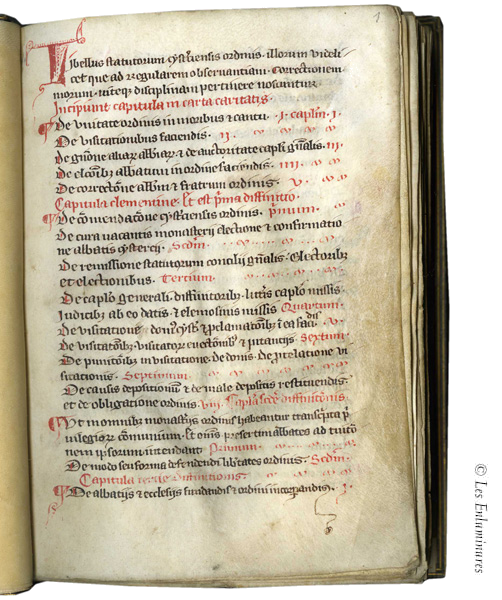 1
Libellus statutorum cysterciensis ordinis illorum videli
cet que ad regularem observantiam correctionem
morum itemque disciplinam pertinere noscuntur
Incipiunt capitula in carta caritatis
De unitate ordinis in moribus et cantu . i . caplm . i .
De visitationibus faciendis . ii .
De gnone aliar abbiar et de auctoritate capli gnalis . iii
De elconibz abbatum in ordine faciendis . iiii .
De correctone abbum et fratrum ordinis . v .
Capitula clementine . Et est prima distinctio .
De comendatone cysterciensis ordinis . primum .
De cura vacantis monasterii electione et confirmatio
ne abbatis cystercii . Scdm .
De remissione statutorum concilii gnalis . Electoribz
et electionibus . Tercium .
De caplo generali . diffinitoribz . littis caplo missis .
Judicibz ab eo datis . et elemosinis missis Quartum .
De visitatione
De visitatoribz Sextum .
De punitonibz in visitatione . de donis . de prelatione vi
sitationis . Septimum .
De causis depositionum et de male depositis restituendis .
et de obligatione ordinis . viii . Capla scde distinctonis .
Ut in omnibz monasteriis ordinis habeantur transcripta pri
vilegiorum communium . Et omnes presertim abbates ad tuito
nem ipsorum intendant Primum .
De modo seu forma defendendi libertates ordinis . Scdm .
Capitula tercie distinctionis .
De abbatiis et ecclesiis fundandis et ordini incorporandis . i .
© Les Enluminures